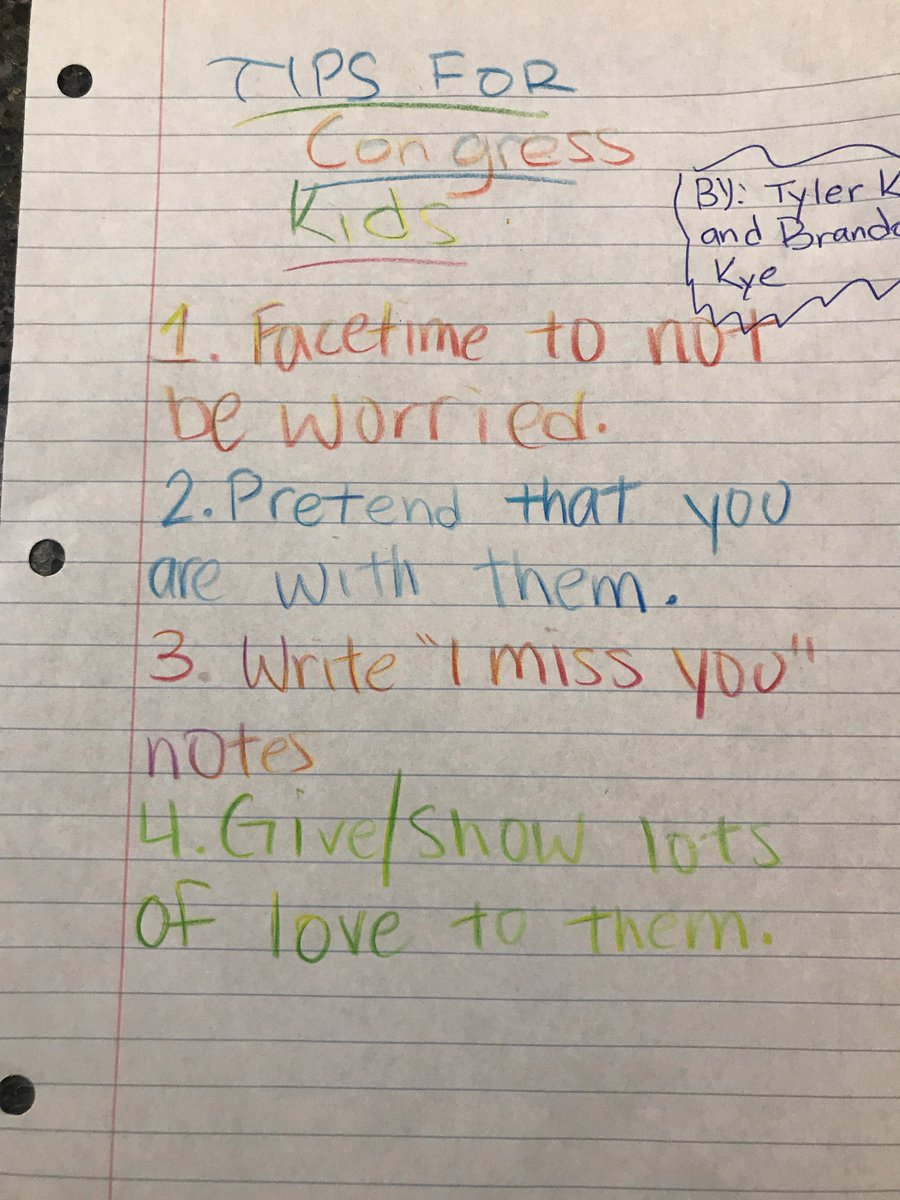 TIPS FOR
Congress
Kids
BY: Tyler K
and Brand
Kye
1. Facetime to not
be worried.
2. Pretend that you
are with them.
3. Write "I miss you"
notes
4. Give/Show lots
of love to them.